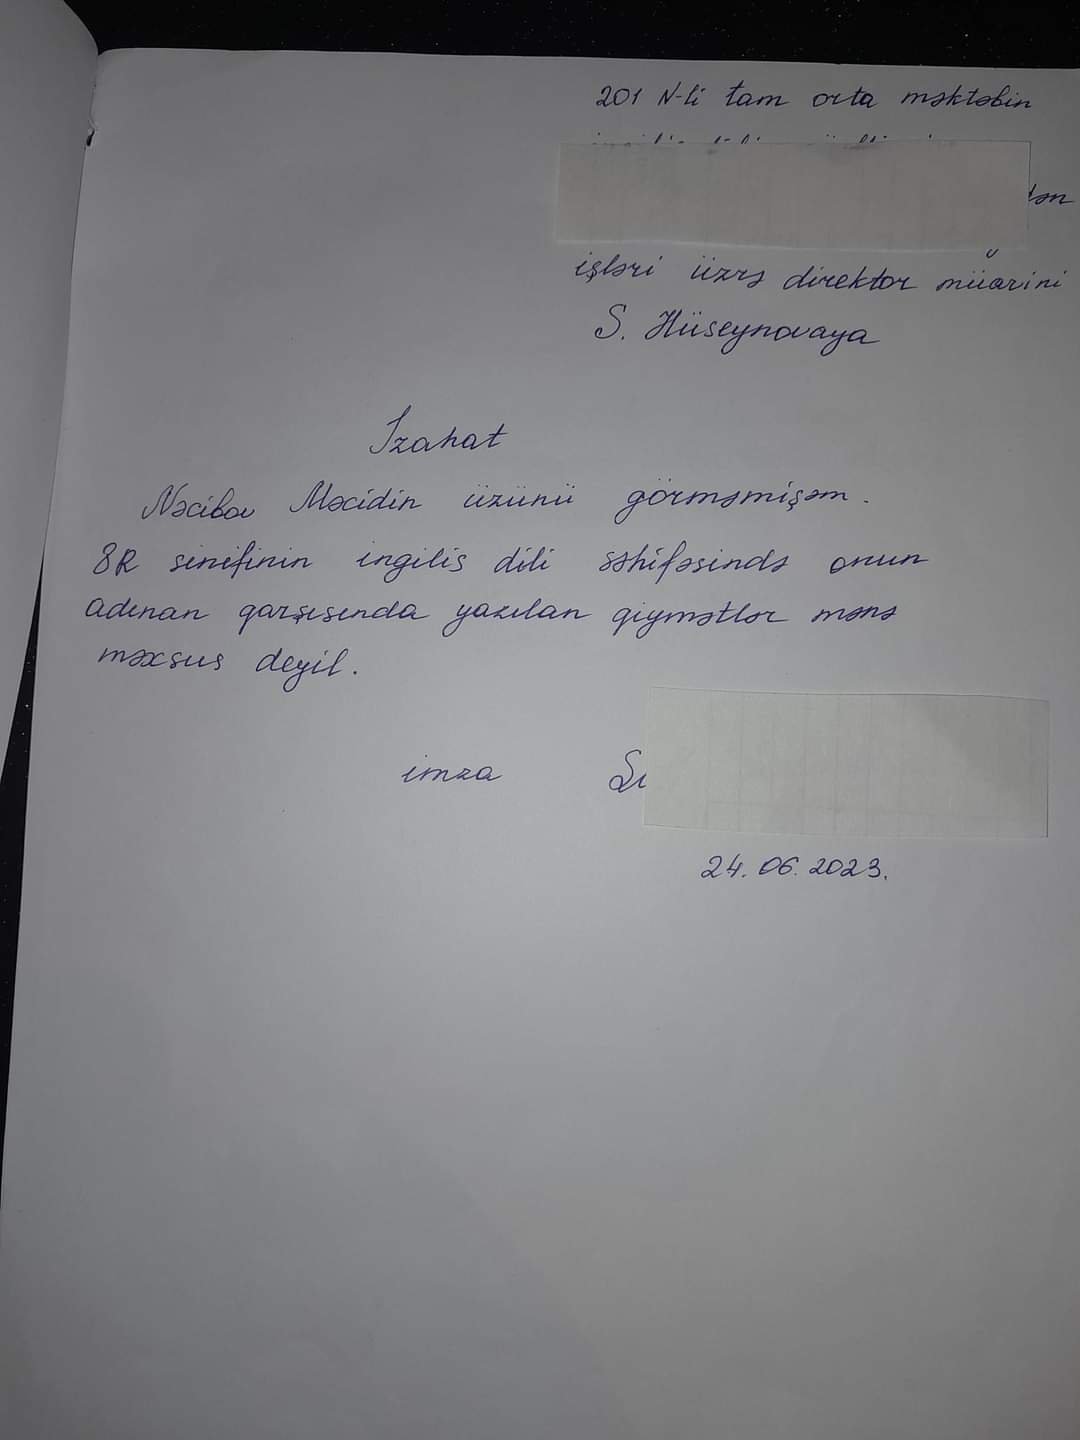 201 N-li tam orta məktəbin
işləri üzrə direktor müavini
S. Hüseynovaya
İzahat
Nəcibov Məcidin üzünü görməmişəm.
8R sinifinin ingilis dili səhifəsində onun
adınan qarşısında yazılan qiymətlər mənə
məxsus deyil.
imza
24.06.2023.